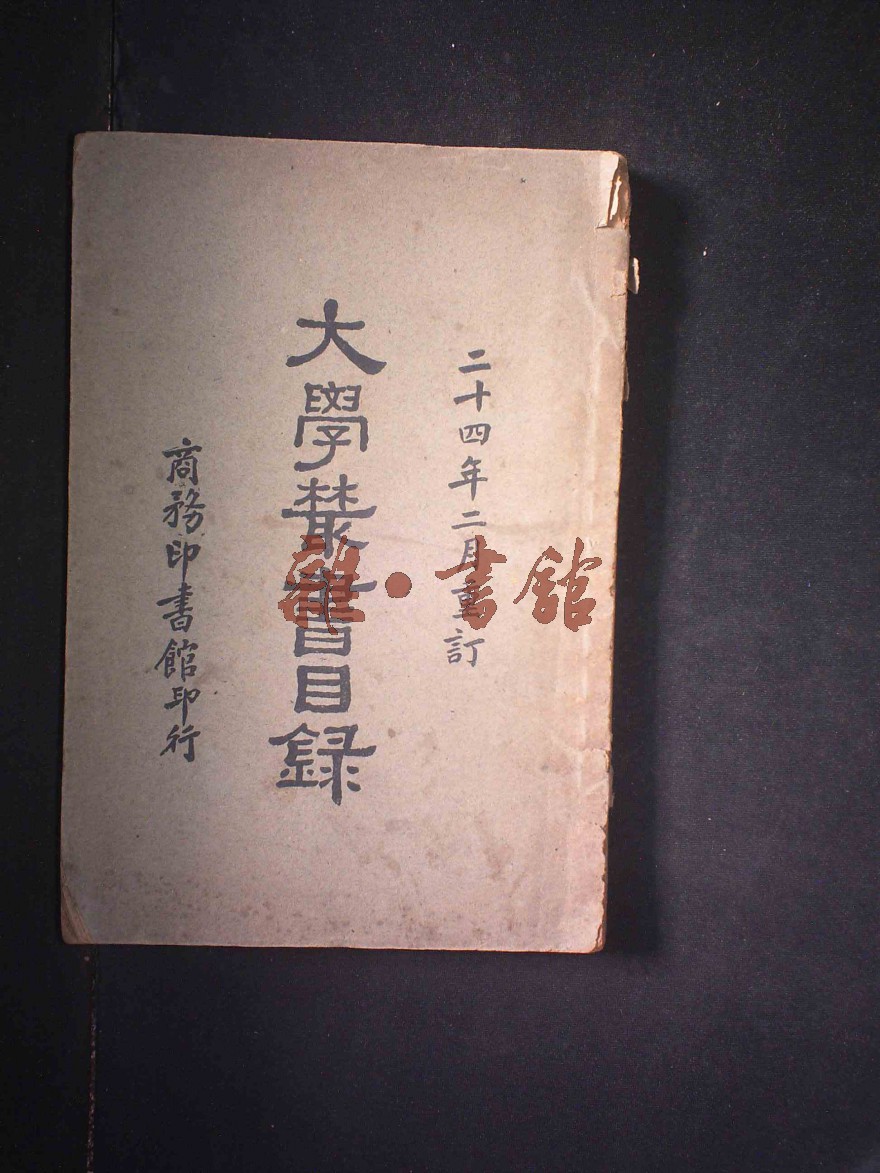 二十四年二月重訂
大學叢書目録
商務印書館印行
雜·書館